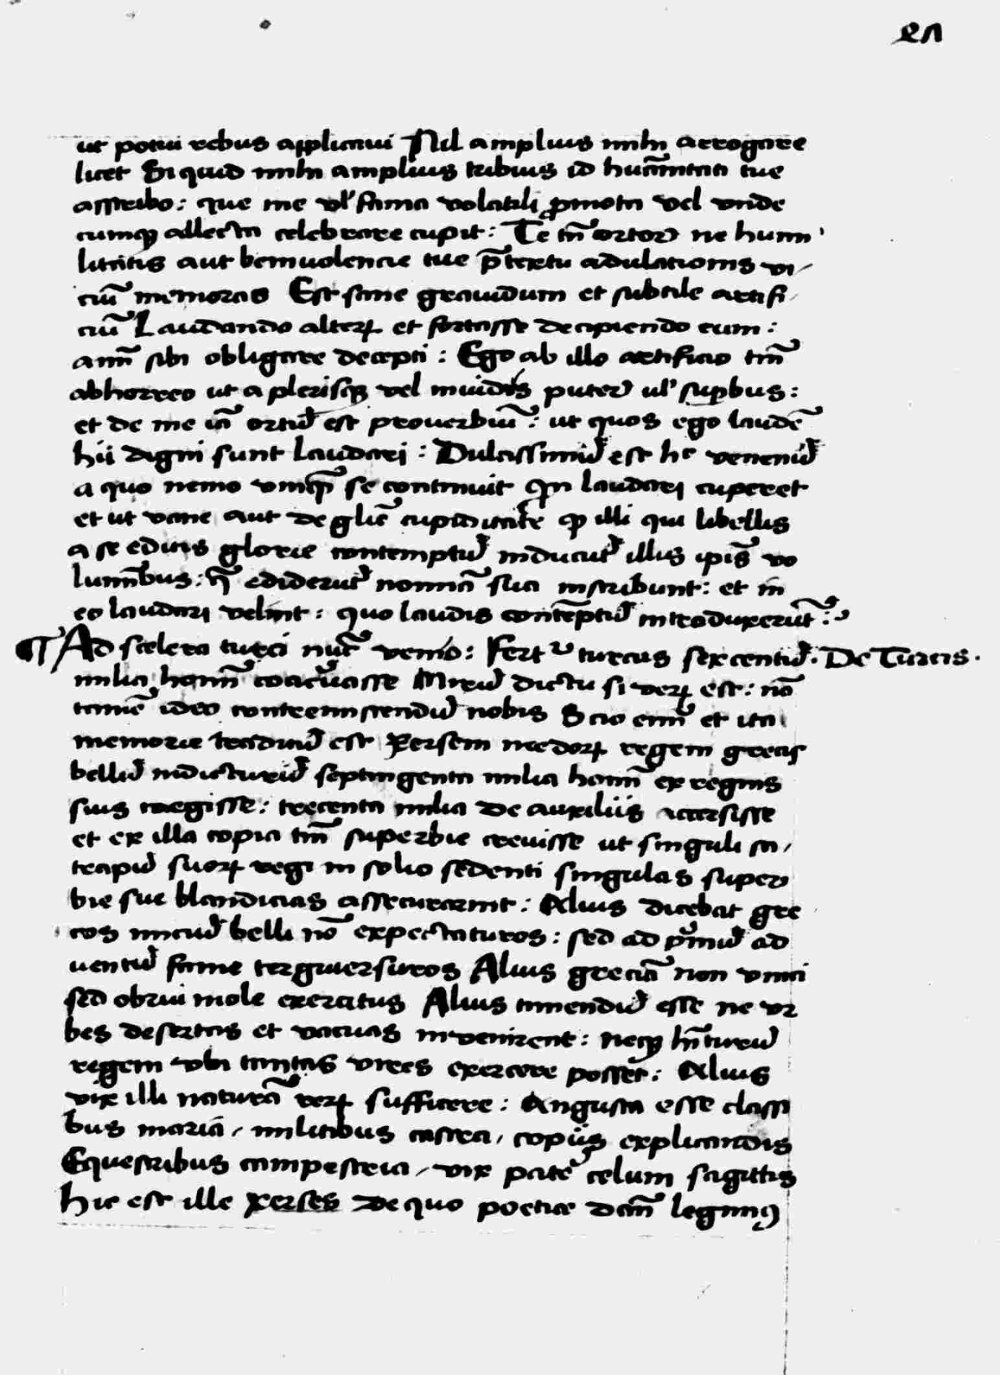 ꝛ𝑛
ut potui rebus applicaui Nil amplius mihi arrogare
licet Si quid mihi amplius tribuis id humãnitati tue
asscribo: que me vł fama volatili ꝓmota vel unde
cumqꝫ allecta celebrare cupit: Te tñ ortor ne humi
litatis aut beniuolencie tue p̃textu adulationis vi/
ciũ memoras Est sane grauidum et subtile artifi/
ciũ Laudando alterꝝ et fortasse decipiendo eum:
anñ sibi obligare decepti: Ego ab illo artificio tm̃
abhorreo ut a plerisqꝫ vel inuidus puter vł suꝑbus:
et de me iã ortũ est prouerbiũ: ut quos ego laudẽ
hii digni sunt laudari: Dulcissimũ est hᵉ venenũ
a quo nemo vmqᷓ se continuit Qn laudari cuperet
et ut vane aut de gliẽ cupiditate ꝙ illi qui libellis
a se editis glorie contemptũ inducũt illis ipĩs vo
luminibus: q̃ ediderũt nominã sua inscribunt: et in
eo laudari velint: quo laudis contẽptũ introduxerũt:
¶ Ad scelera turci nũc venio: Fertᵘʳ turcus sexcentũ. De Turcis.
milia hom̃ coaceruasse Mirũ dictu si verꝝ est: nõ
tamẽ ideo contremiscendũ nobis Scio enĩ et ita
memorie traditũ est Xersem medorꝝ regem grecis
bellũ indicturũ septingenta milia hom̃ ex regnis
suis coegisse: trecenta milia de auxiliis accersisse
et ex illa copia tm̃ superbie creuisse ut singuli sa/
trapũ suorꝝ regi in solio sedenti singulas super
bie sue blandicias assecurarint: Alius dicebat gre
cos nuciũ belli nõ expectaturos: sed ad pᷓmũ ad
uentũ fame terguersuros Alius greciã non vinci
sed obrui mole exercitus Alius timendũ esse ne vr
bes desertas et vacuas inuenirent: neqꝫ hĩturũ
regem vbi tantas vires exercere posset: Alius
vix illi naturã rerꝝ sufficere: Angusta esse classi
bus mariã, militibus castra, copiis explicandis
Equestribus campestria, vix patẽ celum sagittis
hic est ille Xerses de quo poetice dc̃m legimꝰ